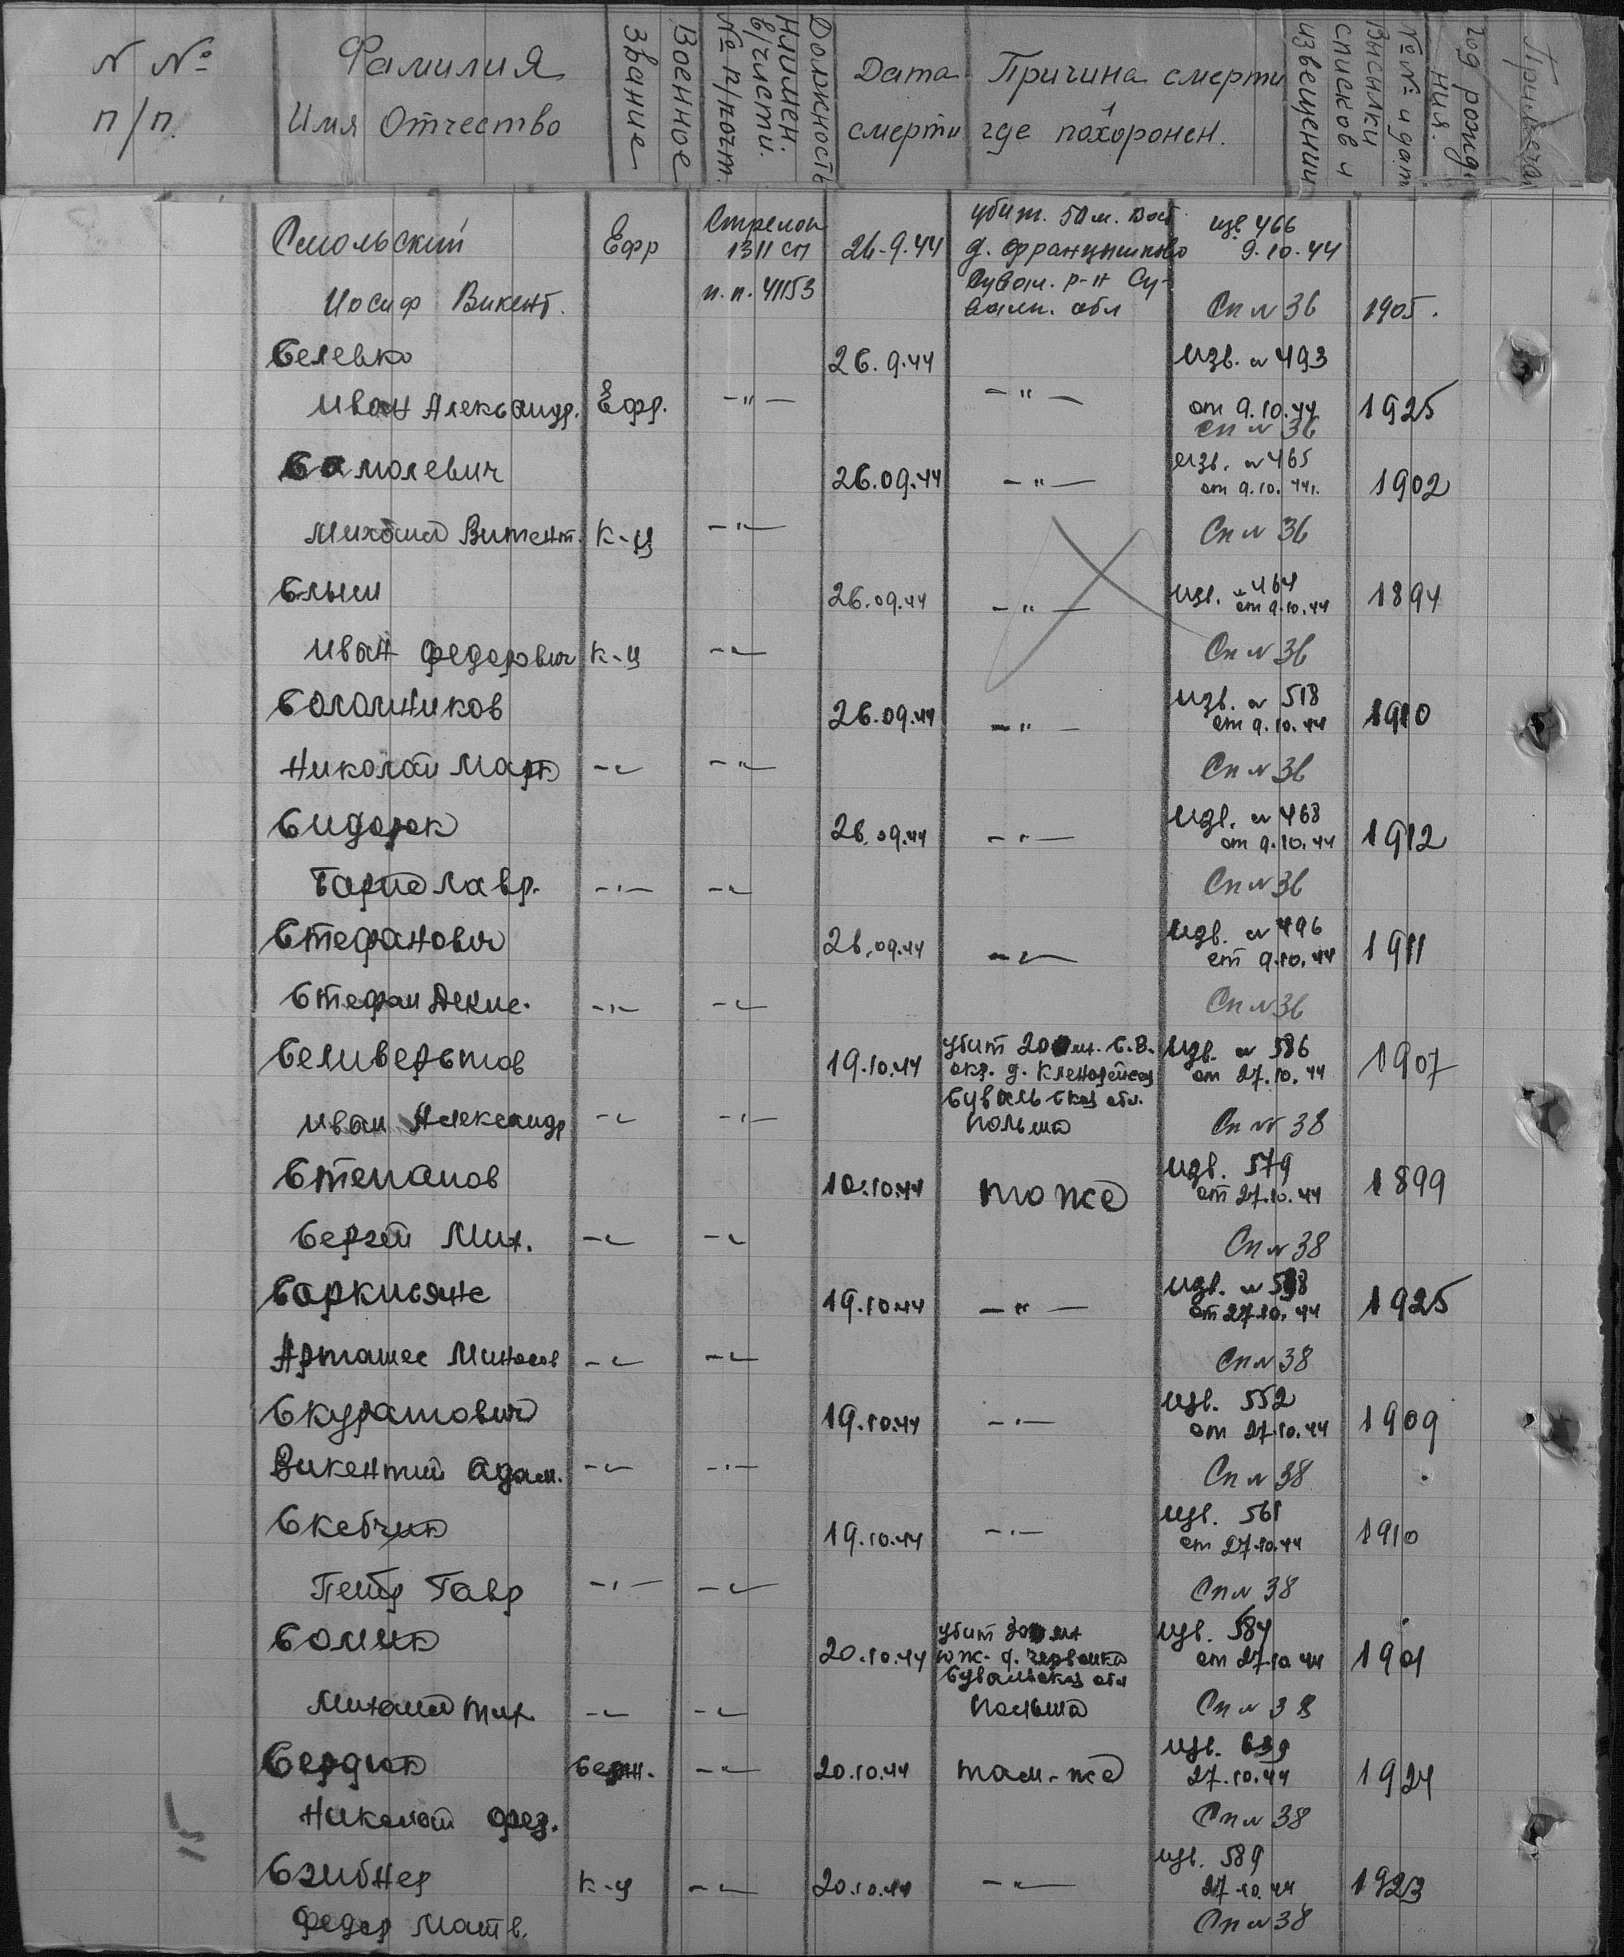 N №
п/п.
Фамилия
Имя Отчество
Военное
звание
Должность
Наимен.
в/части.
№ п/почт.
Дата
смерти
Причина смерти
и
где похоронен.
№№ и дат
высылки
списков и
извещении
Год рожде
ния.
Примеча
Смольский Ефр Стрелок 1311 сп 26-9.44 убит. 50 м. вост. изв 466
д. Францишково 9.10.44
Иосиф Викент. п.п. 41153 Сувал. р-н Су-
валк. обл Сп N 36 1905.
Селевко 26.9.44 Изв. N 493
Иван Александр. Ефр. -"- -"- от 9.10.44 1925
Сп N 36
Самолевич 26.09.44 -"- изв. N 465 1902
от 9.10.44г.
Михаил Викент. к-ц -"- Сп N 36
Слыш 26.09.44 -"- изв. N 464 1894
от 9.10.44
Иван Федорович к-ц -"- Сп N 36
Солольников 26.09.44 -"- изв. N 518 1910
от 9.10.44
Николай Марк -"- -"- Сп N 36
Сидорок 26.09.44 -"- изв. N 468 1912
от 9.10.44
Лавр. -"- -"- Сп N 36
Стефанович 26.09.44 -"- изв. N 496 1911
от 9.10.44
Стефан Денис. -"- -"- Сп N 36
Селиверстов 19.10.44 убит 200 м. С.В. изв. N 586 1907
окр. д. от 27.10.44
Сувальская обл.
Иван Александр -"- -"- Польша Сп N 38
Степанов 10.10.44 то же изв. 579 1899
от 27.10.44
Сергей Мих. -"- -"- Сп N 38
Саркисянс 19.10.44 -"- изв. N 1925
от 27.10.44
Арташес Минасов -"- -"- Сп N 38
Скуратович 19.10.44 -"- изв. 552 1909
от 27.10.44
Викентий Адам. -"- -"- Сп N 38
Скебчик 19.10.44 -"- изв. 561 1910
от 27.10.44
Петр Гавр -"- -"- Сп N 38
Сомик 20.10.44 убит 300 м изв. 584 1901
юж. д. Червонка от 27.10.44
Сувальская обл
Михаил Тих -"- -"- Польша Сп N 38
Сердюк серж. -"- 20.10.44 там-же изв. 1924
27.10.44
Николай Фед. Сп N 38
Сзибнер к-ц -"- 20.10.44 -"- изв. 589 1923
27.10.44
Федор Матв. Сп N 38
15